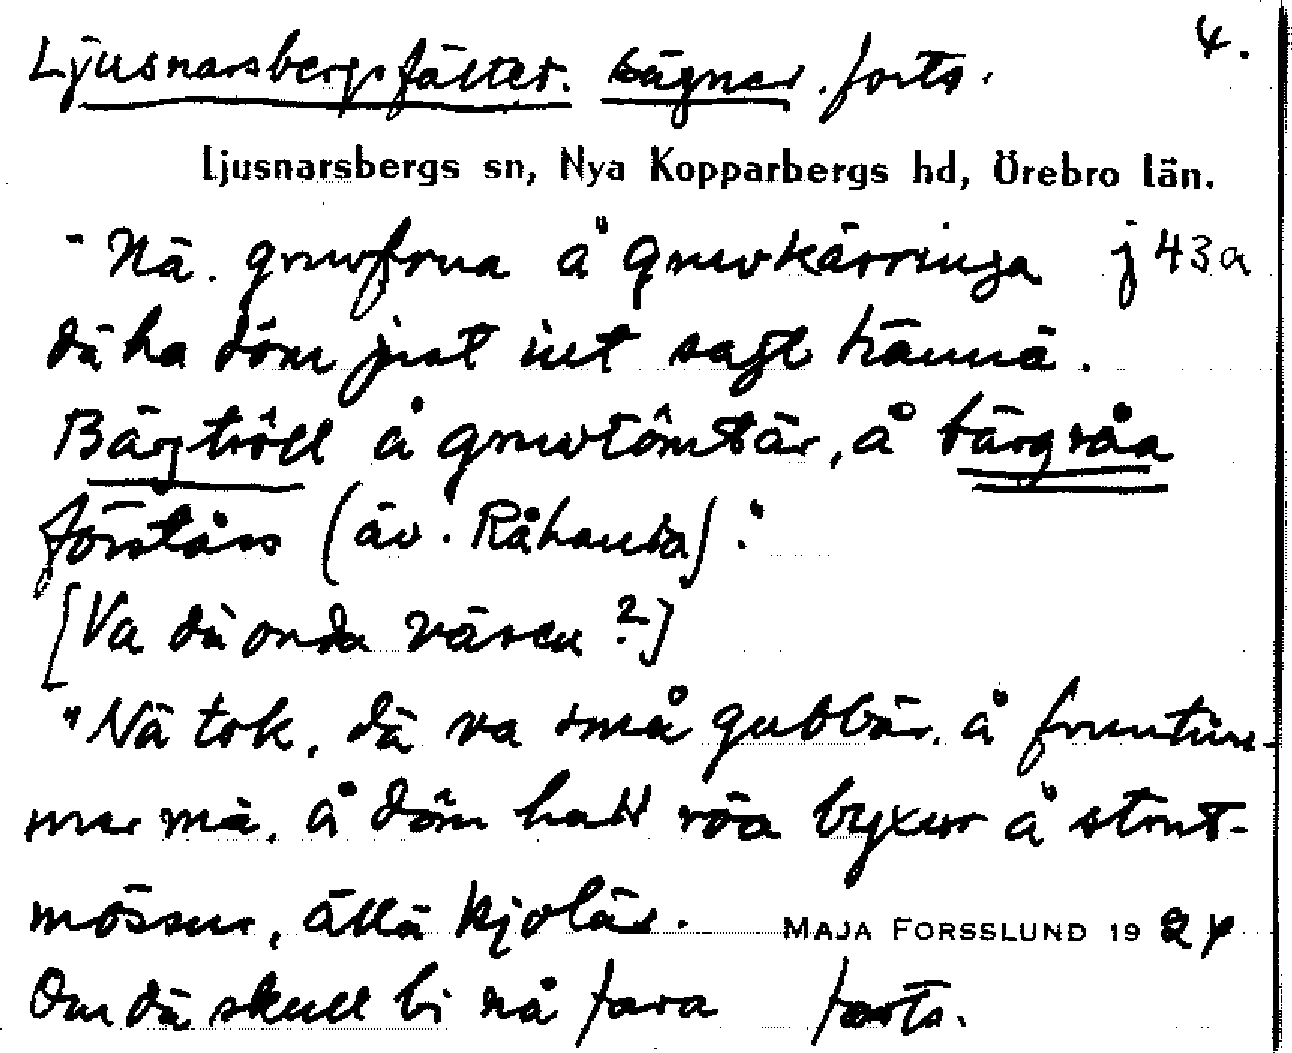 4.
Ljusnarsbergsfältet. Sägner. forts.
Ljusnarsbergs sn, Nya Kopparbergs hd, Örebro län.
"Nä. gruvfrua å gruvkärringa j 43a
dä ha döm just int sagt hännä.
Bärgtröll å gruvtömtär, å bärgråa
förståss (äv. Råhanda)."
[Va dä onda väsen?]
"Nä tok, dä va små gubbär. å fruntim-
mer mä. å döm hadd röa byxur å strut-
mössur, ällä kjolär.
MAJA FORSSLUND 1924
Om dä skull bi nå fara forts.